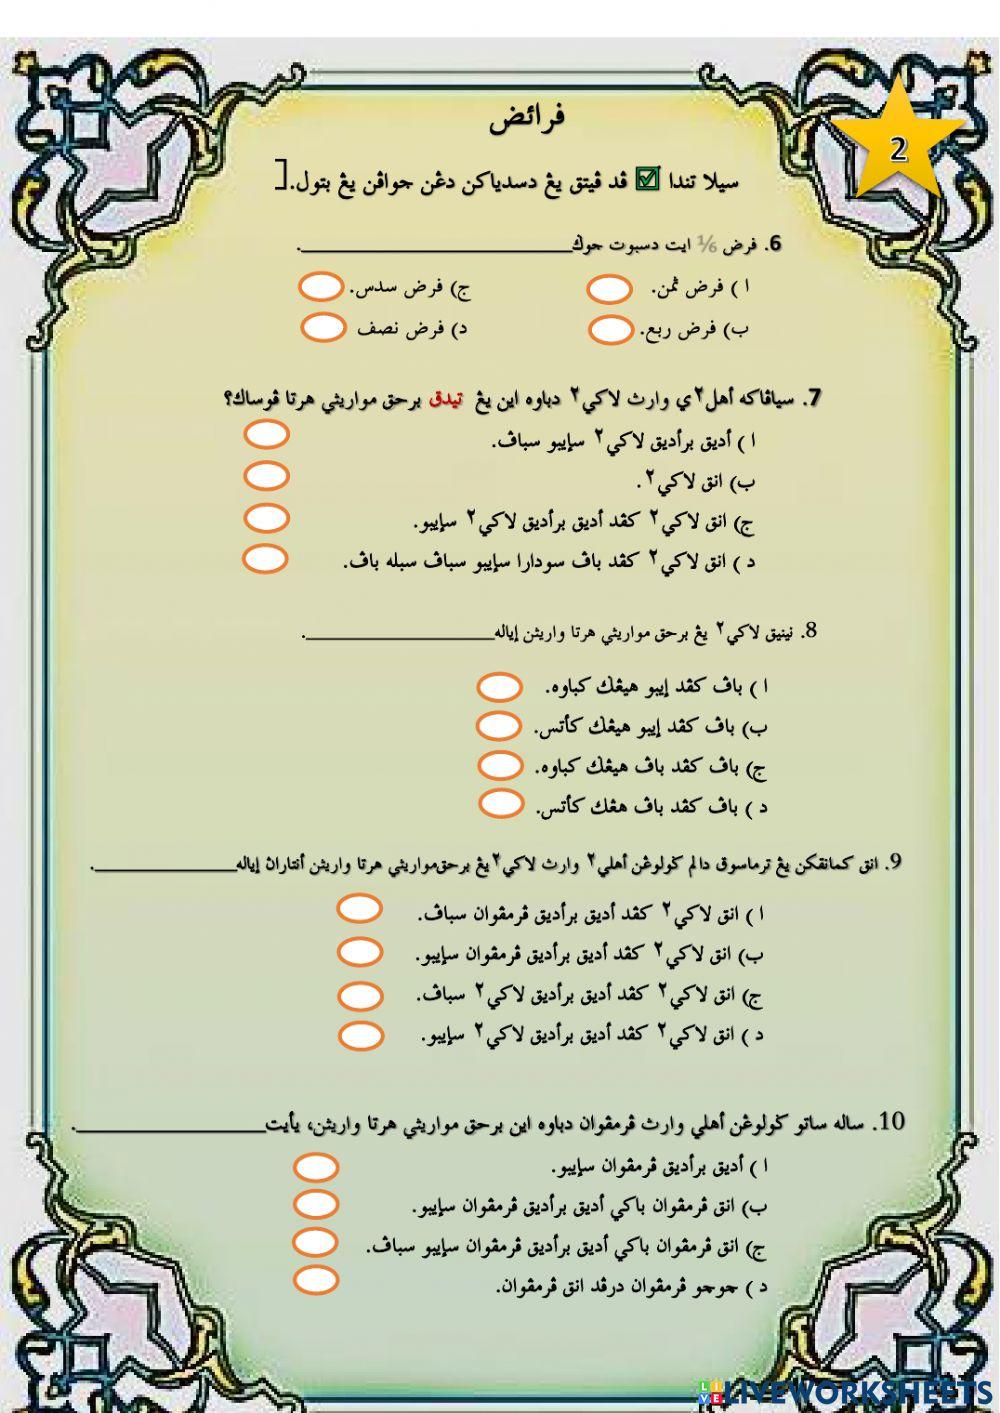 فرائض
2
سيلا تندا ☑ ڤد ڤيتق يڠ دسدياكن دڠن جواڤن يڠ بتول.]
6. فرض ⅙ ايت دسبوت جوݢ____________________.
ا ) فرض ثمن.
ج) فرض سدس.
ب) فرض ربع.
د) فرض نصف
7. سياڤاكه أهل٢ي وارث لاكي٢ دباوه اين يڠ تيدق برحق مواريثي هرتا ڤوساك؟
ا ) أديق برأديق لاكي٢ سإيبو سباڤ.
ب) انق لاكي٢.
ج) انق لاكي٢ كڤد أديق برأديق لاكي٢ سإيبو.
د ) انق لاكي٢ كڤد باڤ سودارا سإيبو سباڤ سبله باڤ.
8. نينيق لاكي٢ يڠ برحق مواريثي هرتا واريثن إياله____________________.
ا ) باڤ كڤد إيبو هيڠݢ كباوه.
ب) باڤ كڤد إيبو هيڠݢ كأتس.
ج) باڤ كڤد باڤ هيڠݢ كباوه.
د ) باڤ كڤد باڤ هڠݢ كأتس.
9. انق كمانقكن يڠ ترماسوق دالم ݢولوڠن أهلي٢ وارث لاكي٢ يڠ برحق‌مواريثي هرتا واريثن أنتاراڽ إياله_______________.
ا ) انق لاكي٢ كڤد أديق برأديق ڤرمڤوان سباڤ.
ب) انق لاكي٢ كڤد أديق برأديق ڤرمڤوان سإيبو.
ج) انق لاكي٢ كڤد أديق برأديق لاكي٢ سباڤ.
د ) انق لاكي٢ كڤد أديق برأديق لاكي٢ سإيبو.
10. ساله ساتو ݢولوڠن أهلي وارث ڤرمڤوان دباوه اين برحق مواريثي هرتا واريثن، يأيت____________________.
ا ) أديق برأديق ڤرمڤوان سإيبو.
ب) انق ڤرمڤوان باݢي أديق برأديق ڤرمڤوان سإيبو.
ج) انق ڤرمڤوان باݢي أديق برأديق ڤرمڤوان سإيبو سباڤ.
د ) چوچو ڤرمڤوان درڤد انق ڤرمڤوان.
LIVE LIVEWORKSHEETS